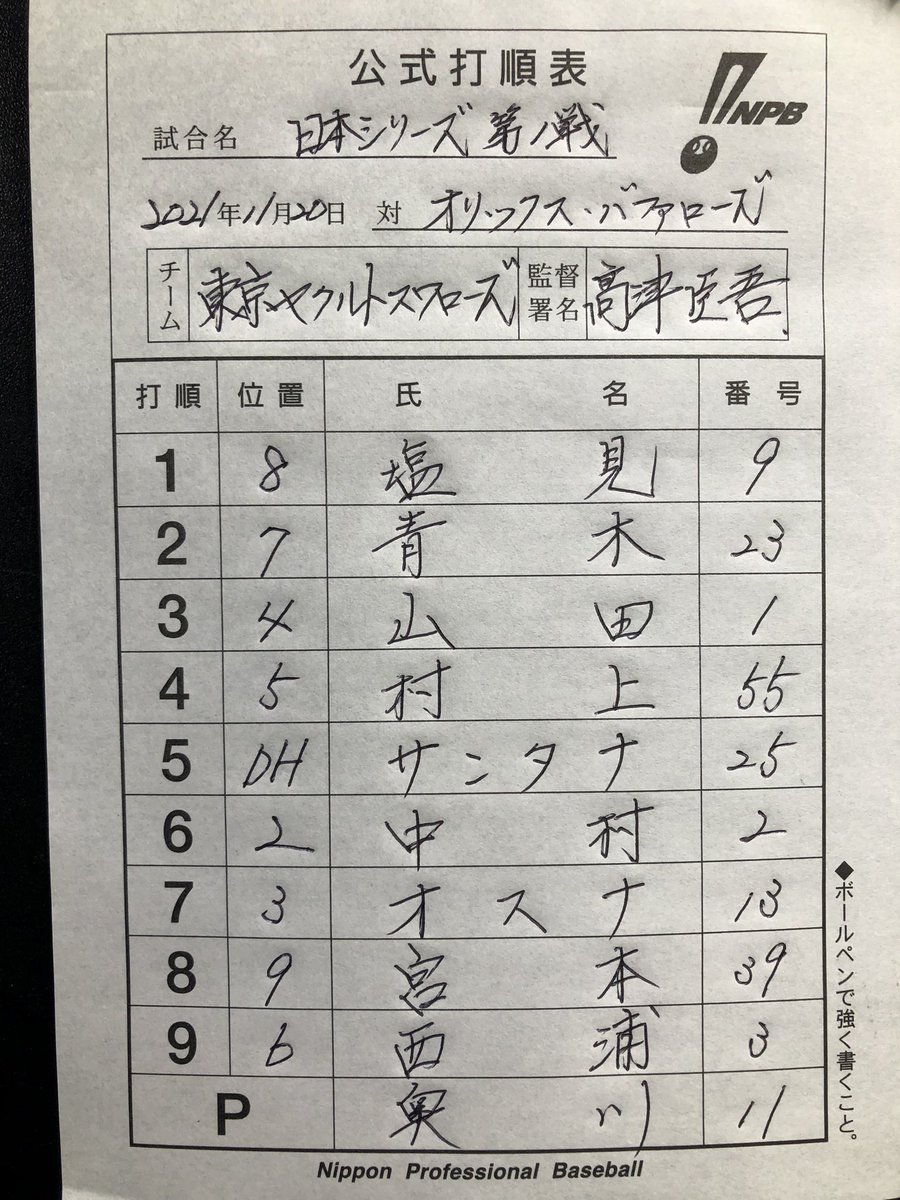 公式打順表
NPB
試合名 日本シリーズ 第1戦
2021年11月20日 対 オリックス・バファローズ
チーム 東京ヤクルトスワローズ 監督署名 高津臣吾
打順 位置 氏名 番号
1 8 塩見 9
2 7 青木 23
3 4 山田 1
4 5 村上 55
5 DH サンタナ 25
6 2 中村 2
7 3 オスナ 13
8 9 宮本 39
9 6 西浦 3
P 奥川 11
◆ボールペンで強く書くこと。
Nippon Professional Baseball